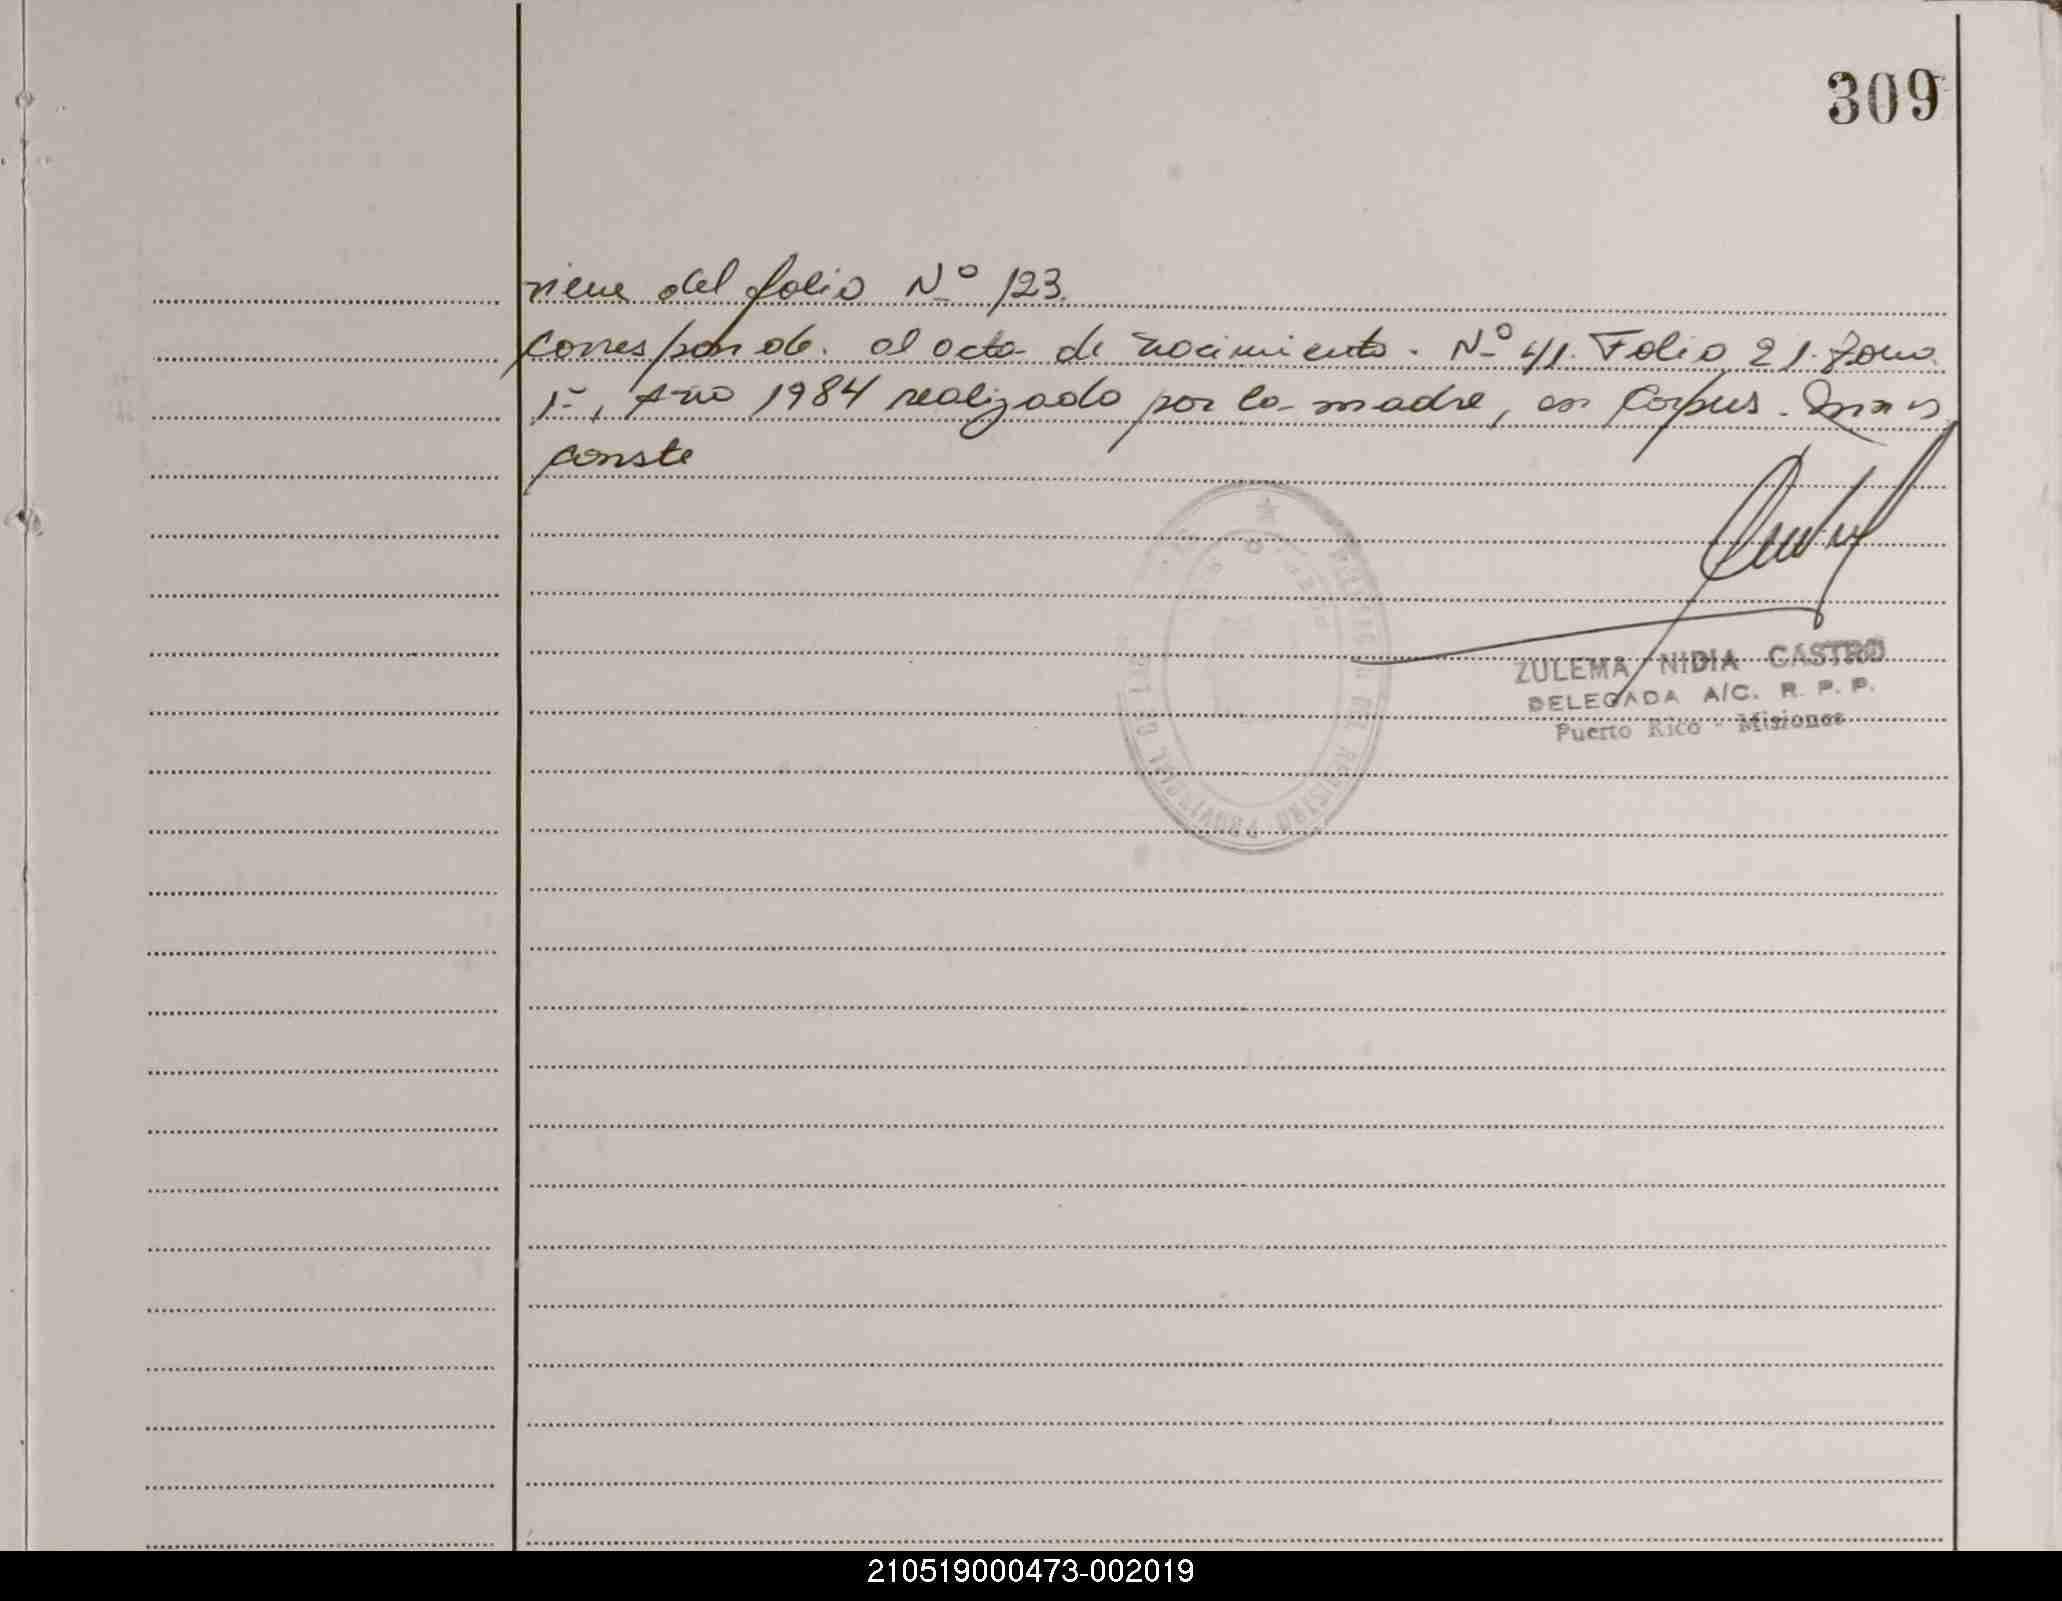 309
viene del folio Nº 123.
corresponde. al acta de nacimiento. Nº 41. Folio 21. Tomo
1º, Año 1984 realizado por la madre, en Corpus. Mnes
conste
ZULEMA NIDIA CASTRO
DELEGADA A/C. R. P. P.
Puerto Rico - Misiones
DEL REGISTRO PROVINCIAL DE LAS
210519000473-002019